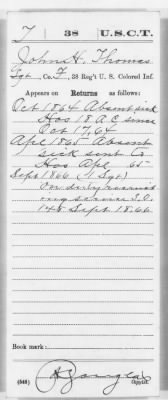 T 38 U.S.C.T.
John H. Thomas
Sgt, Co. F, 38 Reg't U. S. Colored Inf.
Appears on Returns as follows:
Oct 1864 Absent sick
Hos 18 A.C. since
Oct 17, 64
Apl 1865 Absent
sick sent to
Hos Apl 65
Sept 1866 (1 Sgt)
On duty recruit
ing service S.O.
145 Sept 18.66
Book mark:
(546) Copyist.